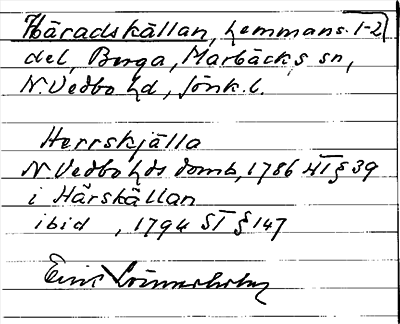 Häradskällan, hemmans. 1-2
del, Berga, Marbäcks sn,
N. Vedbo hd, Jönk. l.
Herrskjälla
N. Vedbo hds domb, 1786 HT § 39
i Härskällan
ibid , 1794 ST § 147